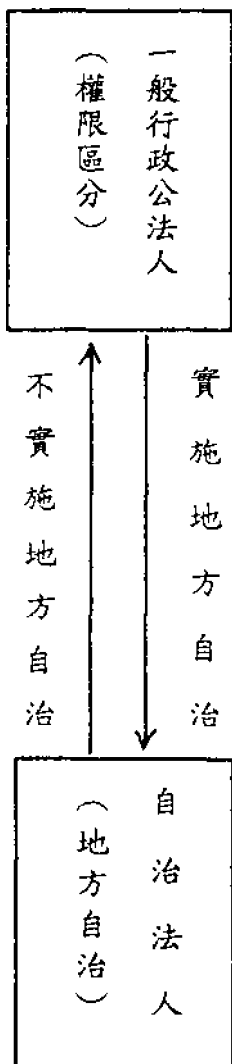 一般行政公法人
（權限區分）
實施地方自治
不實施地方自治
自治法人
（地方自治）